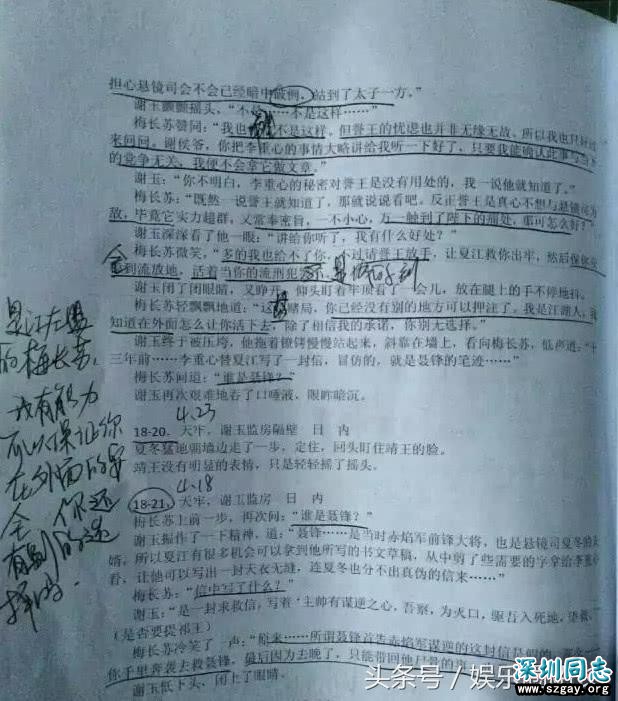 担心悬镜司会不会已经暗中破例，站到了太子一方。”
谢玉颤颤摇头，“不是……不是这样……”
梅长苏赞同：“我也 不是这样。但誉王的忧虑也并非无缘无故，所以我也只好过
来问问。谢侯爷，你把李重心的事情大略讲给我听一下好了，只要我能确认此事与当下
的党争无关，我便不会拿它做文章。”
谢玉：“你不明白，李重心的秘密对誉王是没有用处的，我一说他就知道了。”
梅长苏：“既然一说誉王就知道了，那就说说看吧。反正誉王是真心不想与悬镜司为
敌，毕竟它实力超群，又常奉密旨，一不小心，万一触到了陛下的痛处，那可怎么好？”
谢玉深深看了他一眼：“讲给你听了，我有什么好处？”
梅长苏微笑，“多的我也给不了你，不过请誉王放手，让夏江救你出牢，然后保你
到流放地，活着当你的流刑犯
全
谢玉闭了闭眼睛，又睁开，仰头盯着牢顶看了一会儿，放在腿上的手不停地抖。
梅长苏轻飘飘地道：“这 赌局，你已经没有别的地方可以押注了。我是江湖人，我
知道在外面怎么让你活下去，除了相信我的承诺，你别无选择。”
谢玉终于被压垮，他拖着镣铐慢慢站起来，斜靠在墙上，看向梅长苏，低声道：“十
三年前……李重心替夏江写了一封信，冒仿的，就是聂锋的笔迹……”
梅长苏问道：“谁是聂锋？”
谢玉再次艰难地吞了口唾液，眼眸暗沉。
4.23
18-20. 天牢，谢玉监房隔壁 日 内
夏冬猛地朝墙边走了一步，定住，回头盯住靖王的脸。
靖王没有明显的表情，只是轻轻摇了摇头。
4.18
18-21. 天牢，谢玉监房 日 内
梅长苏上前一步，再次问：“谁是聂锋？”
谢玉振作了一下精神，道：“聂锋……是当时赤焰军前锋大将，也是悬镜司夏冬的夫
婿，所以夏江有很多机会可以拿到他所写的书文草稿，从中剪了些需要的字拿给李重心
看，让他可以写出一封天衣无缝，连夏冬也分不出真伪的信来……”
梅长苏：“信中写了什么？”
谢玉：“是一封求救信，写着‘主帅有谋逆之心，吾察，为灭口，驱吾入死地，望救
（是否要提祁王）
梅长苏冷笑了一声：“原来……所谓聂锋首告赤焰军谋逆的这封信是假的，
你千里奔袭去救聂锋，最后因为去晚了，只能带回他尸骨的事
谢玉低下头，闭上了眼睛。
是江左盟
的梅长苏，
我有能力
可以保证你
在外面的安
全 你还
有别的选
择吗.
头条号／娱乐
深圳同志
www.szgay.org